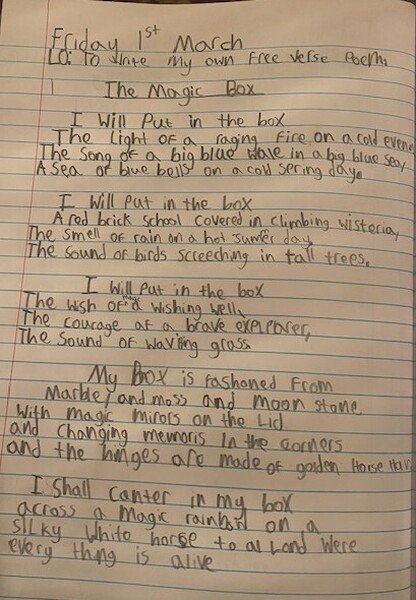 Friday 1st March
LO: To write my own free verse Poem.
The Magic Box
I Will Put in the box
The light of a raging fire on a cold evene
The Song of a big blue wave in a big blue sea,
A Sea of blue bells on a cold spring day.
I will put in the box
A red brick school covered in climbing wisteria,
The smell of rain on a hot sumer day,
The sound of birds screeching in tall trees.
I Will Put in the box
The wish of a wishing well,
The courage of a brave
The Sound of waving grass
My Box is fashoned From
Marble, and moss and moon stone
With magic mirors on the Lid
and changing memoris In the corners
and the hinges are made of golden Horse Hair
I Shall canter in my box
across a Magic on a
silky White horse to a Land were
every thing is alive